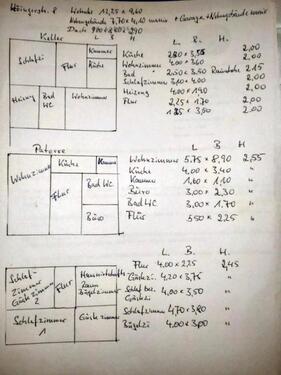 Wohnhs 12,25 x 9,40
Nebengebäude 7,70 x 4,40 + Garage + Nebengebäude
Dach
Keller
L B H
Schlafzi
Flur
Kammer
Küche
Heizung
Bad WC
Wohnzimmer
L. B. H.
Küche 2,80 x 3,55 2,00
Wohnzimmer 4,00 x 3,60 2,00
Bad 2,50 x 3,50 Raumhöhe 2,15
Schlafzimmer 3,00 x 4,00 2,00
Heizung 4,00 x 1,90 2,00
Flur 2,25 x 1,70 2,00
1,25 x 3,50 2,00
Paterre
Wohnzimmer
Küche
Kammer
Flur
Bad WC
Büro
L B H.
Wohnzimmer 5,75 x 8,90 2,55
Küche 4,00 x 3,40 "
Kammer 1,60 x 1,40 "
Büro 3,00 x 2,30 "
Bad WC 3,00 x 1,70 "
Flur 3,50 x 2,25 "
Schlaf-
Zimmer
Gästezimmer
2
Flur
Hauswirtschafts
Raum
Bügelzimmer
Schlafzimmer
1
Gästezimmer
L. B. H.
Flur 4,00 x 2,25 2,45
Gästezi. 4,20 x 3,75 "
Schlafbez. 4,00 x 3,50 "
Gästezi
Schlafzimmer 4,70 x 3,80 "
Bügelzi 4,00 x 3,00 "